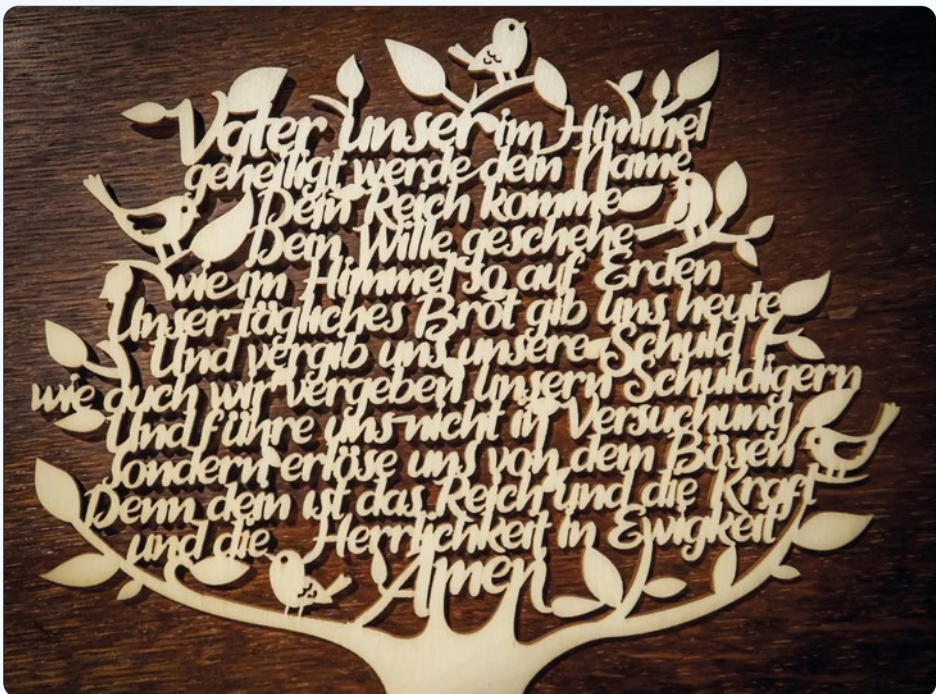 Vater unser im Himmel
geheiligt werde dein Name
Dein Reich komme
Dein Wille geschehe
wie im Himmel so auf Erden
Unser tägliches Brot gib uns heute
Und vergib uns unsere Schuld
wie auch wir vergeben unsern Schuldigern
Und führe uns nicht in Versuchung
sondern erlöse uns von dem Bösen
Denn dein ist das Reich und die Kraft
und die Herrlichkeit in Ewigkeit
Amen